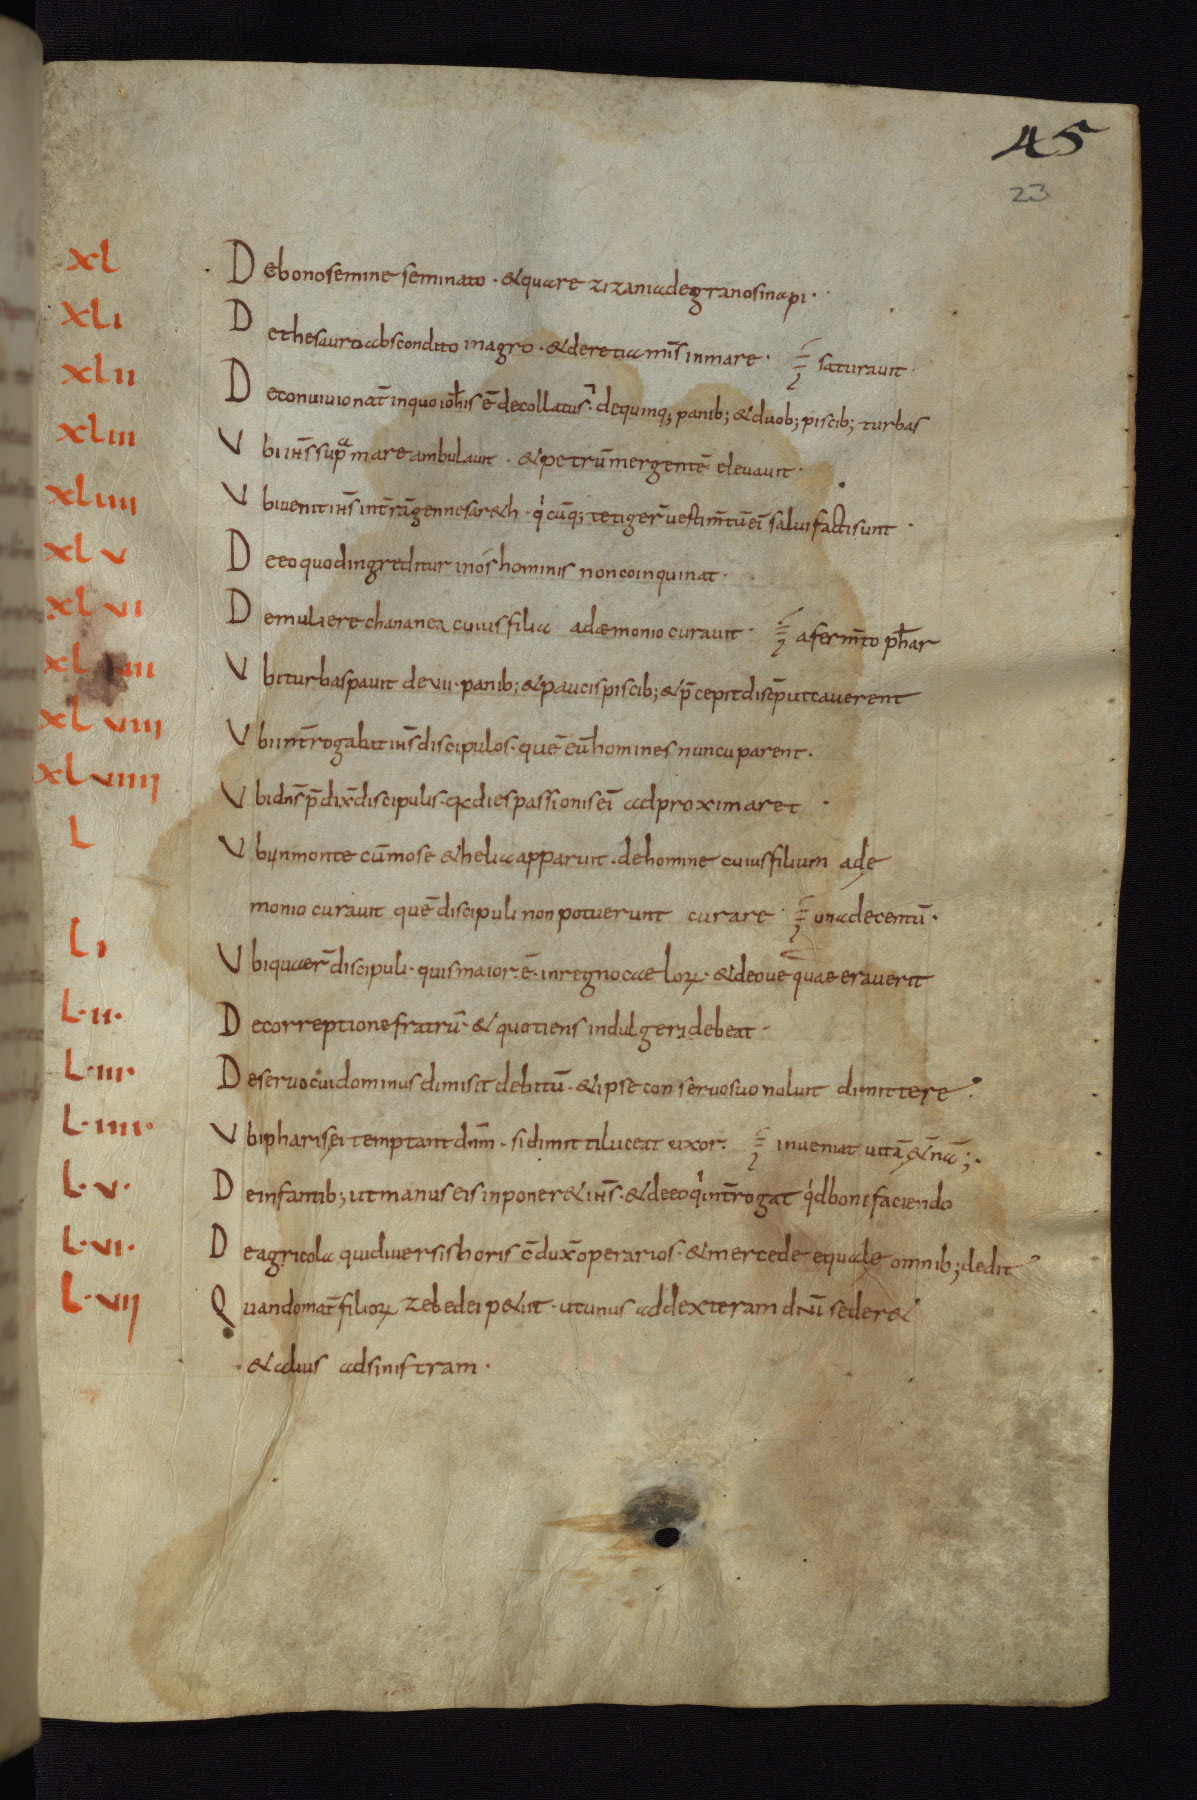 45
23
XL De bono semine seminato · & quare zizania de grano sinapi ·
XLI De thesauro abscondito in agro · & de retia mīs in mare · saturavit ·
XLII De convivio nat̄ in quo ioh̄is ē decollatus · de quinq; panib; & duob; piscib; turbas
XLIII Ubi ih̄s supra mare ambulavit · & petrū mergentē elevavit ·
XLIIII Ubi venit ih̄s in t̄rā gennesareth · q̇cūq; tetiger̄ vestim̄tū ei̅ salvi facti sunt ·
XLV De eo quod ingreditur in ós hominis non coinquinat ·
XLVI De muliere chananea cuius filia a dæmonio curavit · a ferm̄to phar
XLVII Ubi turbas pavit de VII · panib; & paucis piscib; & p̄cepit discip̄ ut caverent
XLVIII Ubi int̄rogabit ih̄s discipulos · quē eū homines nuncuparent ·
XLVIIII Ubi dn̄s p̄dix̄ discipulis · q̄ dies passionis ei̅ adproximaret ·
L Ubi in monte cū mose & helia apparuit · de homine cuius filium a de
monio curavit quē discipuli non potuerunt curare · una de centū ·
LI Ubi quaer̄ discipuli · quis maior · ē · in regno caeloꝝ · & de ove quae eraverit
L·II· De correptione fratrū · & quotiens indulgeri debeat ·
L·III· De servo cui dominus dimisit debitū · & ipse conservo suo noluit dimittere ·
L·IIII· Ubi pharisei temptant dn̄m · si dimitti liceat uxor · inveniat vitā &n̄ā ;·
L·V· De infantib; ut manus eis inponer& ih̄s · & de eo q̇ int̄rogat q̇d boni faciendo
L·VI· De agricola qui diversis horis c̄dux̄ operarios · & mercede equale omnib; dedit
L·VII Quando mat̄ filioꝝ zebedei p&iit · ut unus ad dexteram dn̄i seder&
& alius ad sinistram ·